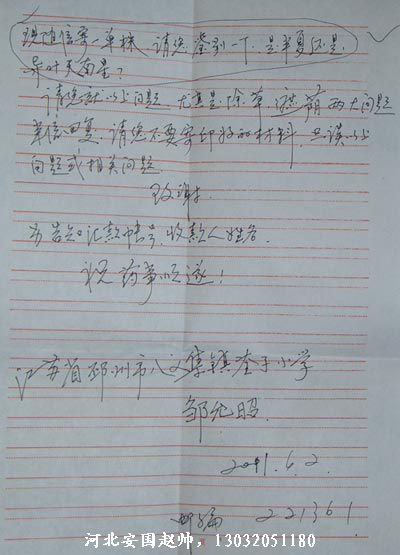 现随信寄一单株，请您鉴别一下，是半夏还是
异叶天南星？
请您就以上问题，尤其是除草、遮荫两大问题
单信回复，请您不要寄印好的材料，只谈以上
问题或相关问题。
致谢！
另告知汇款帐号，收款人姓名。
祝药事顺遂！
江苏省邳州市八义集镇奎子小学
邹允昭
2011.6.2
邮编 221361
河北安国赵帅，13032051180